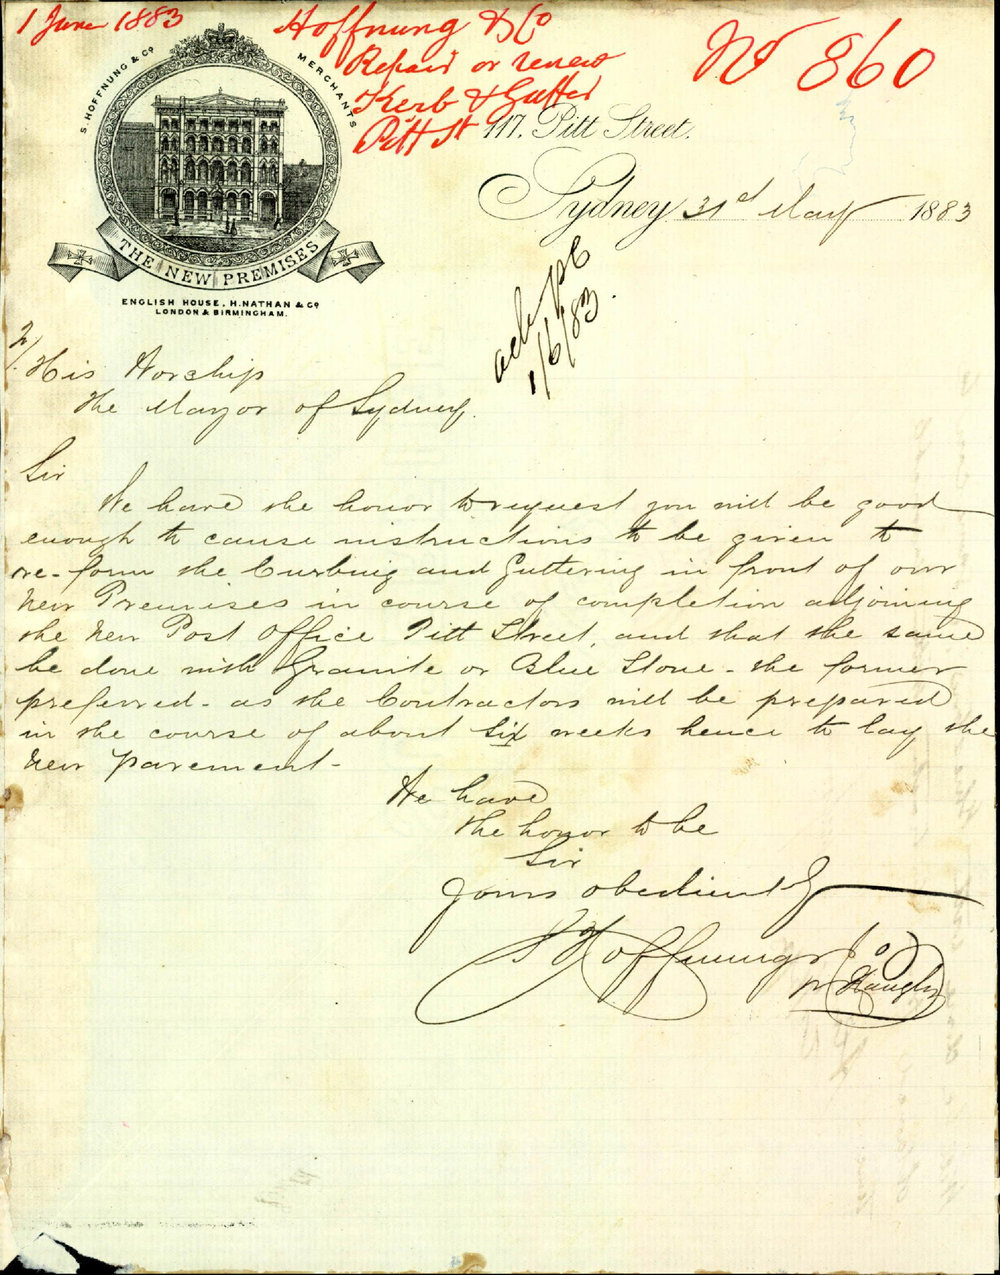 1 June 1883
Hoffnung & Co
Repair or renew
Kerb & Gutter
Pitt St
No 860
S. HOFFNUNG & Co MERCHANTS
THE NEW PREMISES
ENGLISH HOUSE, H. NATHAN & Co
LONDON & BIRMINGHAM.
117. Pitt Street.
Sydney 31st May 1883
1/6/83.
His Worship
The Mayor of Sydney.
Sir
We have the honor to request you will be good
enough to cause instructions to be given to
re-form the Curbing and Guttering in front of our
New Premises in course of completion adjoining
the New Post Office Pitt Street, and that the same
be done with Granite or Blue Stone - the former
preferred - as the Contractors will be prepared
in the course of about six weeks hence to lay the
New pavement -
We have
the honor to be
Sir
Yours obediently
S Hoffnung & Co